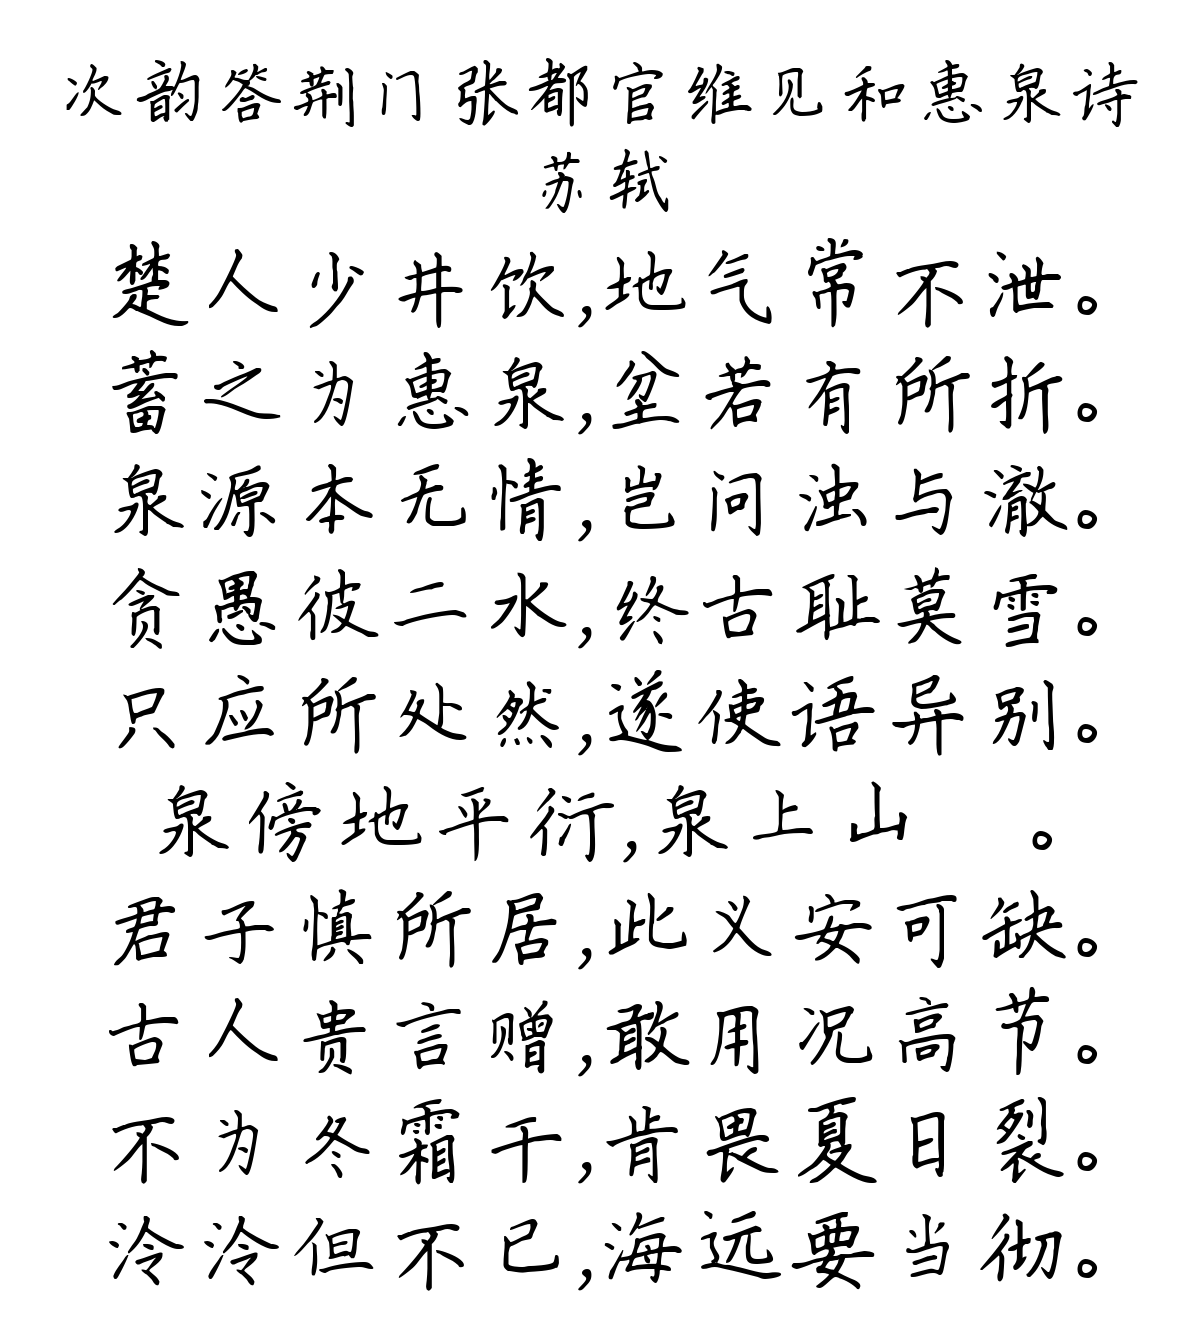 次韵答荆门张都官维见和惠泉诗
苏轼
楚人少井饮,地气常不泄。
蓄之为惠泉,坌若有所折。
泉源本无情,岂问浊与澈。
贪愚彼二水,终古耻莫雪。
只应所处然,遂使语异别。
泉傍地平衍,泉上山 。
君子慎所居,此义安可缺。
古人贵言赠,敢用况高节。
不为冬霜干,肯畏夏日裂。
泠泠但不已,海远要当彻。